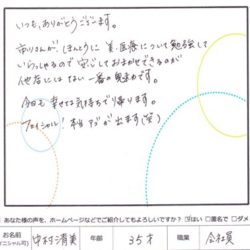 いつも、ありがとうございます。
市川さんが、ほんとうに 美・医療について勉強して
いらっしゃるので 安心しておまかせできるのが
他店にはない一番の魅力です。
今日も 幸せな気持ちで帰ります。
フェイシャル! 本当 アゴが出ます(笑)
あなた様の声を、ホームページなどでご紹介してもよろしいですか? はい □匿名で □ダメ
お名前 中村 清美 年齢 35才 職業 会社員
イニシャル可)